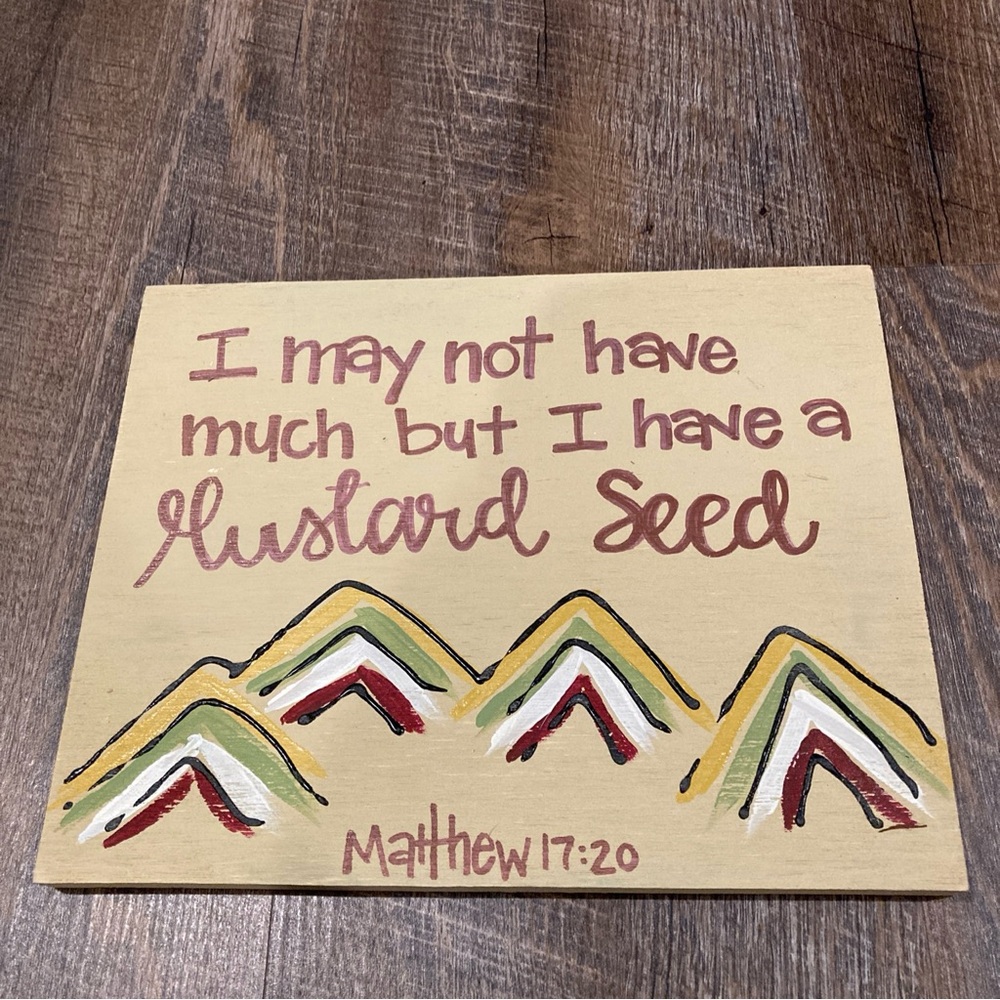 I may not have
much but I have a
Mustard Seed
Matthew 17:20